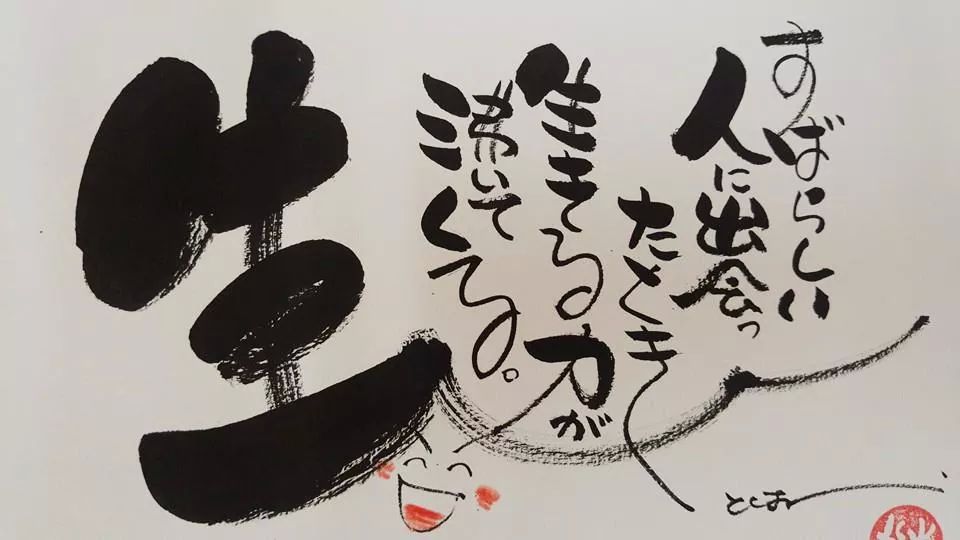 すばらしい
人に出会っ
たとき
生きる力が
沸いて
くる。
生
としお